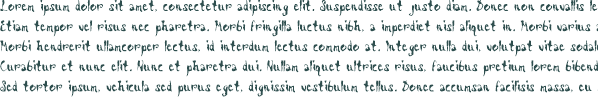 Lorem ipsum dolor sit amet, consectetur adipiscing elit. Suspendisse ut justo diam. Donec non convallis le
Etiam tempor vel risus nec pharetra. Morbi fringilla luctus nibh, a imperdiet nisl aliquet in. Morbi varius a
Morbi hendrerit ullamcorper lectus, id interdum lectus commodo at. Integer nulla dui, volutpat vitae sodale
Curabitur et nunc elit. Nunc et pharetra dui. Nullam aliquet ultrices risus, faucibus pretium lorem bibend
Sed tortor ipsum, vehicula sed purus eget, dignissim vestibulum tellus. Donec accumsan facilisis massa, eu